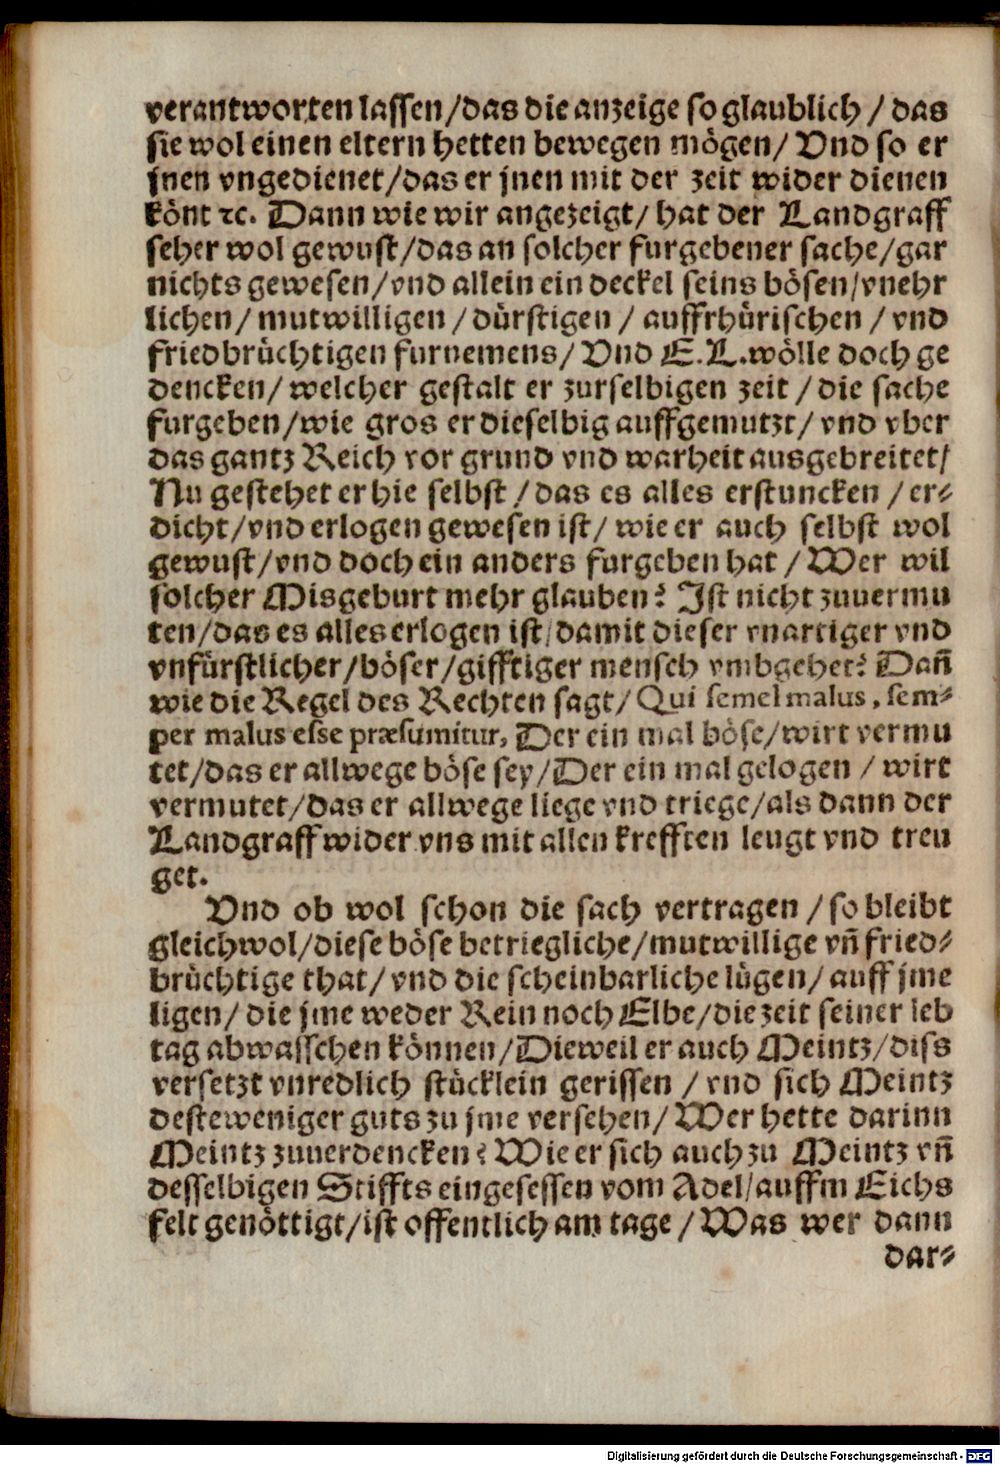 verantworten lassen/das die anzeige so glaublich / das
sie wol einen eltern hetten bewegen mögen/ Vnd so er
jnen vngedienet/das er jnen mit der zeit wider dienen
könt ꝛc. Dann wie wir angezeigt/ hat der Landgraff
seher wol gewust/das an solcher furgebener sache/gar
nichts gewesen/vnd allein ein deckel seins bösen/vnehr
lichen/ mutwilligen /dürstigen / auffrhürischen / vnd
friedbrüchtigen furnemens/ Vnd E.L.wölle doch ge
dencken/ welcher gestalt er zurselbigen zeit / die sache
furgeben/wie gros er dieselbig auffgemutzt/ vnd vber
das gantz Reich vor grund vnd warheit ausgebreitet/
Nu gestehet er hie selbst / das es alles erstuncken / er⸗
dicht/vnd erlogen gewesen ist/ wie er auch selbst wol
gewust/vnd doch ein anders furgeben hat / Wer wil
solcher Misgeburt mehr glauben? Ist nicht zuuermu
ten/das es alles erlogen ist/damit dieser vnartiger vnd
vnfürstlicher/böser/gifftiger mensch vmbgehet? Dañ
wie die Regel des Rechten sagt/ Qui semel malus, sem⸗
per malus esse præsumitur, Der ein mal böse/wirt vermu
tet/das er allwege böse sey/Der ein mal gelogen / wirt
vermutet/das er allwege liege vnd triege/als dann der
Landgraff wider vns mit allen krefften leugt vnd treu
get.
Vnd ob wol schon die sach vertragen /so bleibt
gleichwol/diese böse betriegliche/mutwillige vñ fried⸗
brüchtige that/ vnd die scheinbarliche lügen/ auff jme
ligen/ die jme weder Rein noch Elbe/die zeit seiner leb
tag abwasschen können/Dieweil er auch Meintz/diss
versetzt vnredlich stücklein gerissen / vnd sich Meintz
desteweniger guts zu jme versehen/ Wer hette darinn
Meintz zuuerdencken? Wie er sich auch zu Meintz vñ
desselbigen Stiffts eingesessen vom Adel/auffm Eichs
felt genöttigt/ist offentlich am tage / Was wer dann
dar⸗
Digitalisierung gefördert durch die Deutsche Forschungsgemeinschaft - DFG